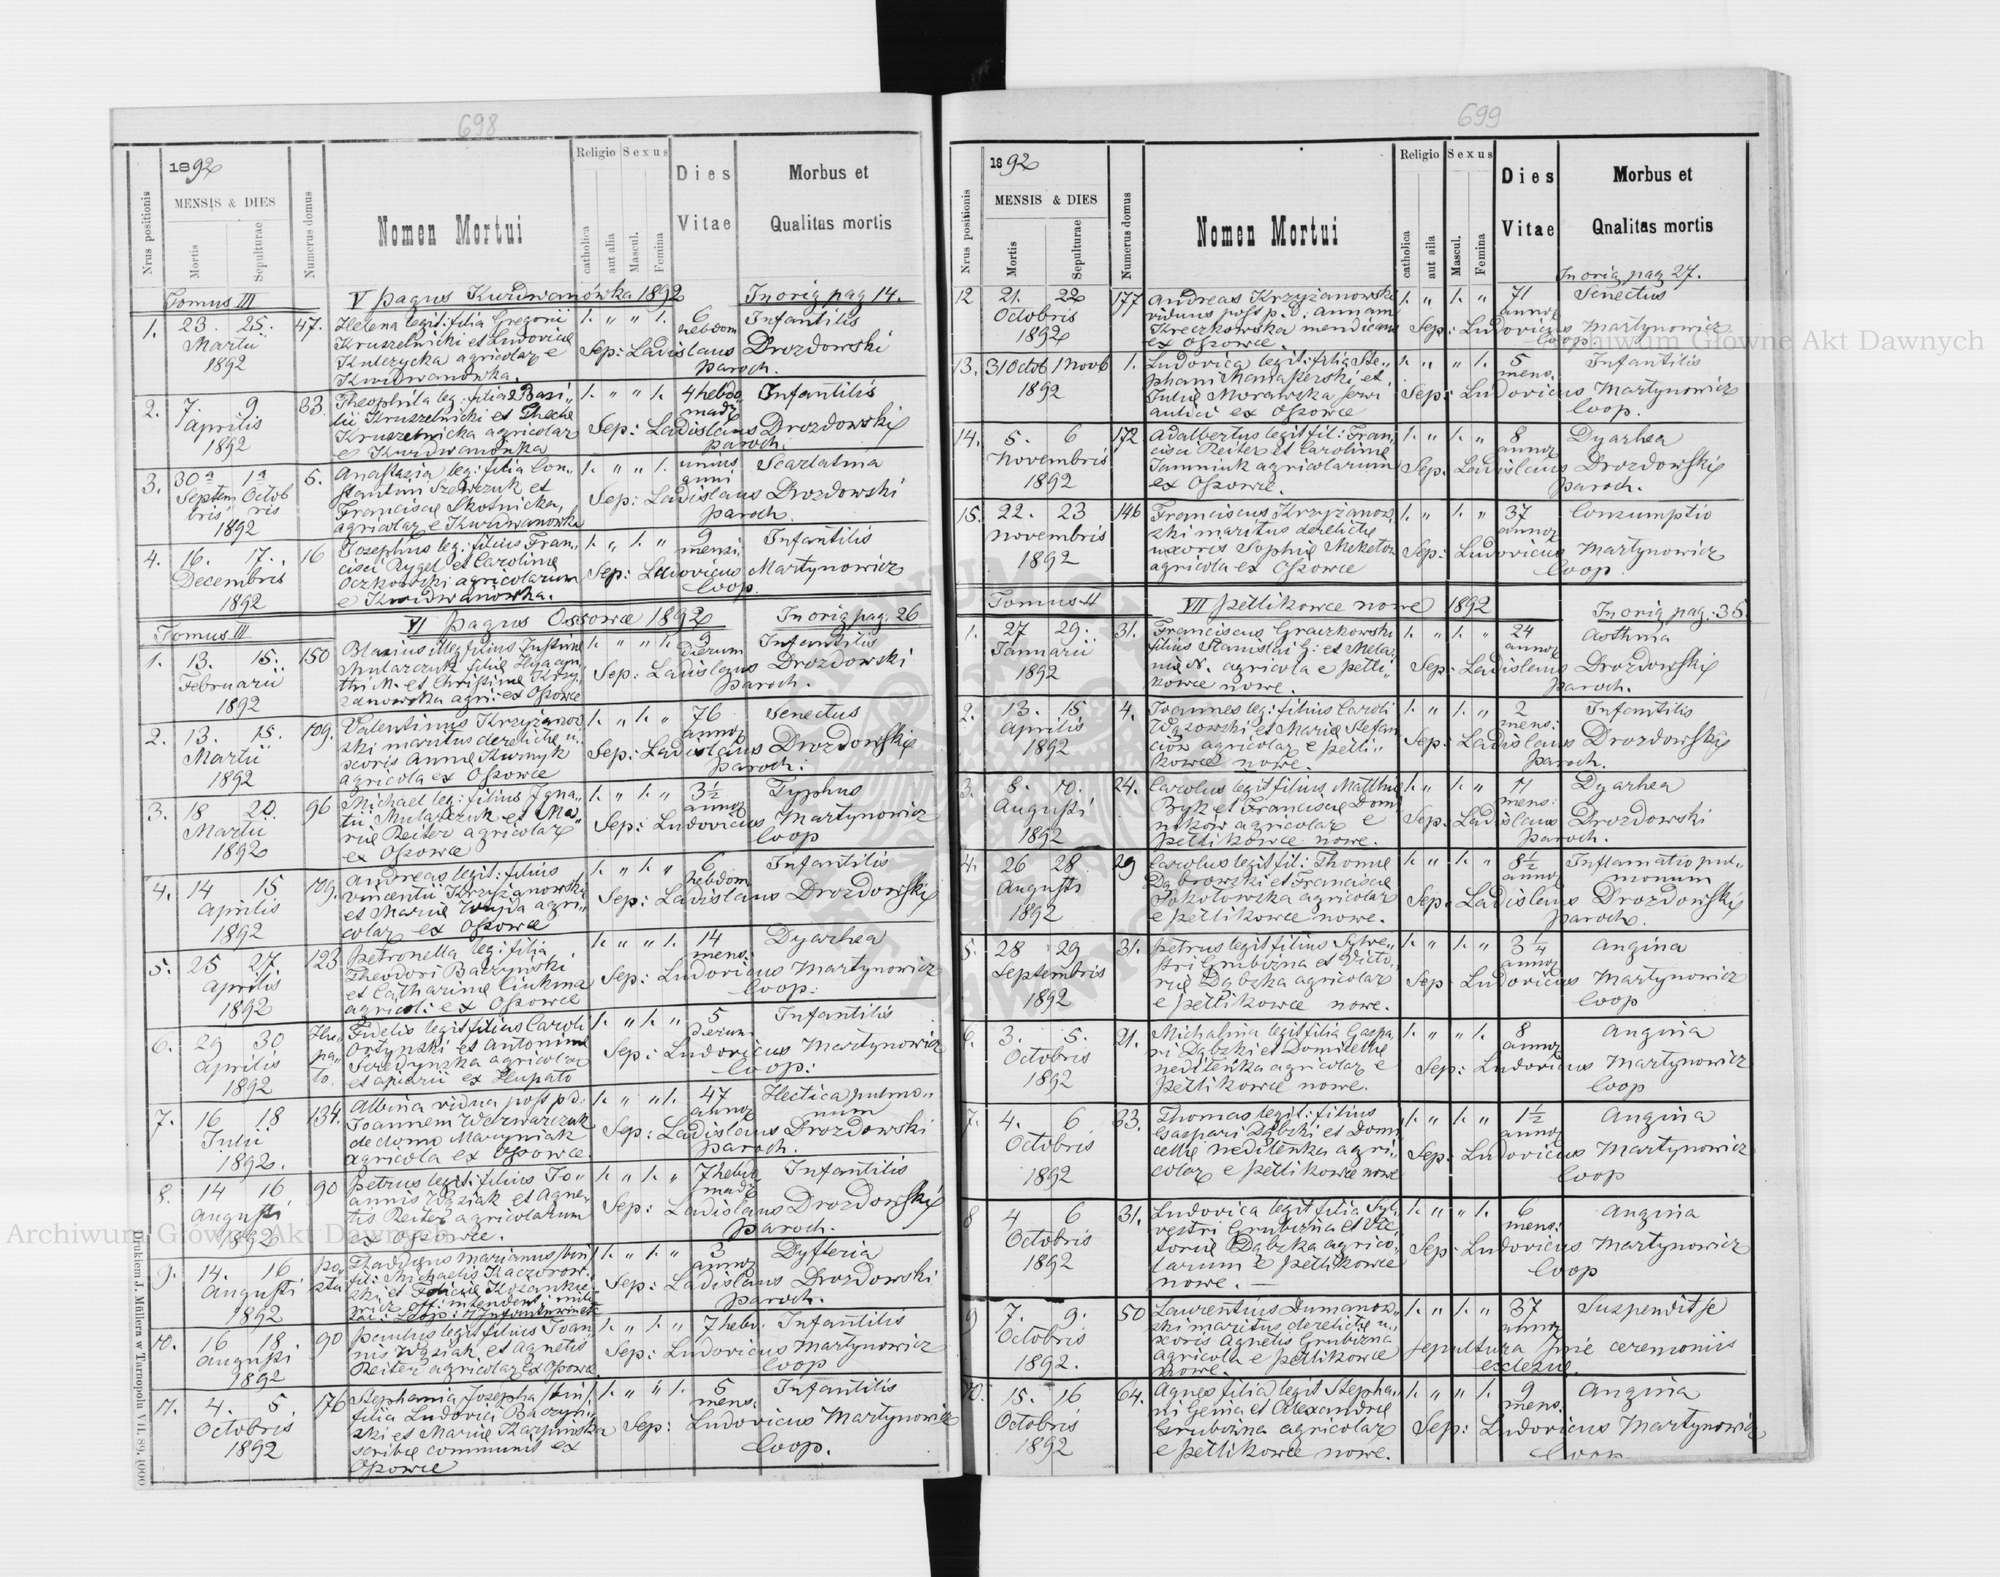 698
1892
MENSIS & DIES
Nrus positionis
Mortis
Sepulturae
Numerus domus
Nomen Mortui
Religio
Sexus
catholica
aut alia
Mascul.
Femina
Dies
Vitae
Morbus et
Qualitas mortis
Tomus III
V pagus Kurdwanówka 1892
In orig pag 14.
1. 23. 25. 47. Helena legit: filia Gregorii 1. " " 1. 6 Infantilis
Martii Kruszelnicki et Ludovicae hebdom
1892 Kulczycka agricolar e Sep: Ladislaus Drozdowski
Kurdwanówka. paroch.
2. 7 9 33. Theophila leg: filia Basi 1. " " 1. 4 hebdo Infantilis
Aprilis lii Kruszelnicki et Theclae madz
1892 Kruszelnicka agricolar Sep: Ladislaus Drozdowski
e Kurdwanówka paroch.
3. 30a 1a 5. Anastazia leg: filia Con 1. " " 1. unius Scarlatina
Septem Octob stantini Szewczuk et anni
bris ris Franciscae Skotnicka, Sep: Ladislaus Drozdowski
1892 agricolar e Kurdwanówka paroch.
4. 16. 17. 16 Josephus leg: filius Fran 1. " 1. " 9 Infantilis
Decembris cisci Rygel et Carolinae mensi
1892 Oczkowski agricolarum Sep: Ludovicus Martynowicz
e Kurdwanówka. Coop.
Tomus III
VI pagus Ossowce 1892
In orig pag. 26
1. 13. 15. 150 Blasius illeg filius Justinae 1. " 9 Infantilis
Februarii Mularczuk filiae Hyacyn dierum
1892 thi M. et Christinae Krzy Sep: Ladislaus Drozdowski
żanowska agri: ex Ossowce paroch.
2. 13. 15. 109. Valentinus Krzyżanow 1. " 1. " 76 Senectus
Martii ski maritus derelictae u annor
1892 xoris Annae Sep: Ladislaus Drozdowski
agricola ex Ossowce paroch:
3. 18 20. 96 Michael leg: filius Igna 1. " 1. " 3½ Typhus
Martii tii Mularczuk et Ma annor
1892 riae Reiter agricolar Sep: Ludovicus Martynowicz
ex Ossowce Coop
4. 14 15 109. Andreas legit: filius 1. " 1. " 6 Infantilis
Aprilis Vincentii Krzyżanowski hebdom
1892 et Mariae Wojda agri Sep: Ladislaus Drozdowski
colar ex Ossowce
5. 25 27. 123 Petronella leg: filia 1. " " 1. 14 Dyarhea
Aprilis Theodori Baczynski mens:
1892 et Catharinae Sep: Ludovicus Martynowicz
agricol: ex Ossowce Coop:
6. 29 30 Hu pa to. Fidelis legit filius Caroli 1. " 1. " 5 Infantilis
Aprilis Ortynski et Antoninae dierum
1892 agricolar Sep: Ludovicus Martynowicz
et apiarii ex Hupato Coop:
7. 16 18 134. Albina vidua post p.d. 1. " " 1. 47 Hectica pulmo
Julii Joannem Werwarczuk annor num
1892. de domo Maryniak Sep: Ladislaus Drozdowski
agricola ex Ossowce. paroch.
8. 14 16 90 Petrus legit: filius Jo 1. " 1. " 7 hebdo Infantilis
Augusti annis Woziak et Agne madz
1892 tis Reiter agricolarum Sep: Ladislaus Drozdowski
ex Ossowce. paroch.
9. 14. 16 Thaddeus Marianus bin 1. " 1. " 3 Dyfteria
Augusti fil: Michaelis Kaczorow annor
1892 ski et Feliciae Sep: Ladislaus Drozdowski
paroch.
10. 16 18 90 Paulus legit filius Joan 1. " 1. " 7 hebd. Infantilis
Augusti nis Woziak et Agnetis Sep: Ludovicus Martynowicz
1892 Reiter agricolar ex Ossowce Coop
11. 4. 5. 176 Stephania Josepha bin 1. " " 1. 5 Infantilis
Octobris filia Ludovici Baczyn mens:
1892 ski et Mariae Karpinska Sep: Ludovicus Martynowicz
scribae communis ex Coop.
Ossowce
Drukiem J. Müllera w Tarnopolu VII. 89, 1000
699
1892
MENSIS & DIES
Nrus positionis
Mortis
Sepulturae
Numerus domus
Nomen Mortui
Religio
Sexus
catholica
aut aila
Mascul.
Femina
Dies
Vitae
Morbus et
Qnalitas mortis
In orig pag 27.
12 21. 22 177 Andreas Krzyżanowski 1. " 1. " 71 Senectus
Octobris viduus post p.d. Annam annor
1892 Kreczkowska mendicans Sep: Ludovicus Martynowicz
ex Ossowce. Coop.
13. 31 Octob 1 Novb 1. Ludovica legit: filia Ste 1. " " 1. 5 Infantilis
1892 phani et mens.
Juliae Morawska servi Sep: Ludovicus Martynowicz
aulici ex Ossowce Coop.
14. 5. 6 172 Adalbertus legit fil: Fran 1. " 1. " 8 Dyarhea
Novembris cisci Reiter et Carolinae annor
1892 agricolarum Sep. Ladislaus Drozdowski
ex Ossowce. paroch.
15. 22. 23 146 Franciscus Krzyżanow 1. " 1. " 37 Consumptio
Novembris ski maritus derelictae annor
1892 uxoris Sophiae Meketor Sep: Ludovicus Martynowicz
agricola ex Ossowce Coop.
Tomus II
VII Petlikowce nowe 1892
In orig pag: 35
1. 27 29. 31. Franciscus Graczkowski 1. " 1. " 24 Aasthma
Januarii filius Stanislai G: et Mela annor
1892 niae N. agricola e Petli Sep: Ladislaus Drozdowski
kowce nowe. paroch.
2. 13. 15 4. Joannes leg: filius Caroli 1. " 1. " 2 Infantilis
Aprilis Wąsowski et Mariae Stefan mens:
1892 ciów agricolar e Petli Sep: Ladislaus Drozdowski
kowce nowe. paroch.
3. 8. 10. 24. Carolus legit filius Matthiae 1. " 1. " 11 Dyarhea
Augusti Byk et Franciscae Domi mens:
1892 ników agricolar e Sep: Ladislaus Drozdowski
Petlikowce nowe. paroch.
4. 26 28 29 Carolus legit fil: Thomae 1. " 1. " 8½ Inflamatio pul
Augusti Dąbrowski et Franciscae annor monum
1892 Sokołowska agricolar Sep: Ladislaus Drozdowski
e Petlikowce nowe. paroch.
5. 28 29 31. Petrus legit filius Sylve 1. " 1. " 3¼ Angina
Septembris stri Grubizna et Victo annor
1892 riae Dąbska agricolar Sep: Ludovicus Martynowicz
e Petlikowce nowe. Coop
6. 3. 5. 21. Michalina legit filia Gaspa 1. " " 1. 8 Angina
Octobris ri Dąbski et Domicellae annor
1892 Nediteńka agricolar e Sep: Ludovicus Martynowicz
Petlikowce nowe. Coop
7. 4. 6 33. Thomas legit: filius 1. " 1. " 1½ Angina
Octobris Gaspari Dąbski et Domi annor
1892 cellae Nediteńka agri Sep: Ludovicus Martynowicz
colar e Petlikowce nowe Coop
8 4 6 31. Ludovica legit filia Syl 1. " " 1. 6 Angina
Octobris vestri Grubizna et Vic mens:
1892 toriae Dąbska agrico Sep: Ludovicus Martynowicz
larum e Petlikowce Coop
nowe. —
9 7. 9. 50 Laurentius Dumanow 1. " 1. " 37 Suspendit se
Octobris ski maritus derelictae u annor
1892. xoris Agnetis Grubizna Sepultura sine ceremoniis
agricola e Petlikowce ecclesiae.
nowe.
10. 15. 16 64. Agnes filia legit Stepha 1. " " 1. 9 Angina
Octobris ni Genia et Alexandrae mens.
1892 Grubizna agricolar Sep: Ludovicus Martynowicz
e Petlikowce nowe. Coop
Archiwum Główne Akt Dawnych
Archiwum Główne Akt Dawnych